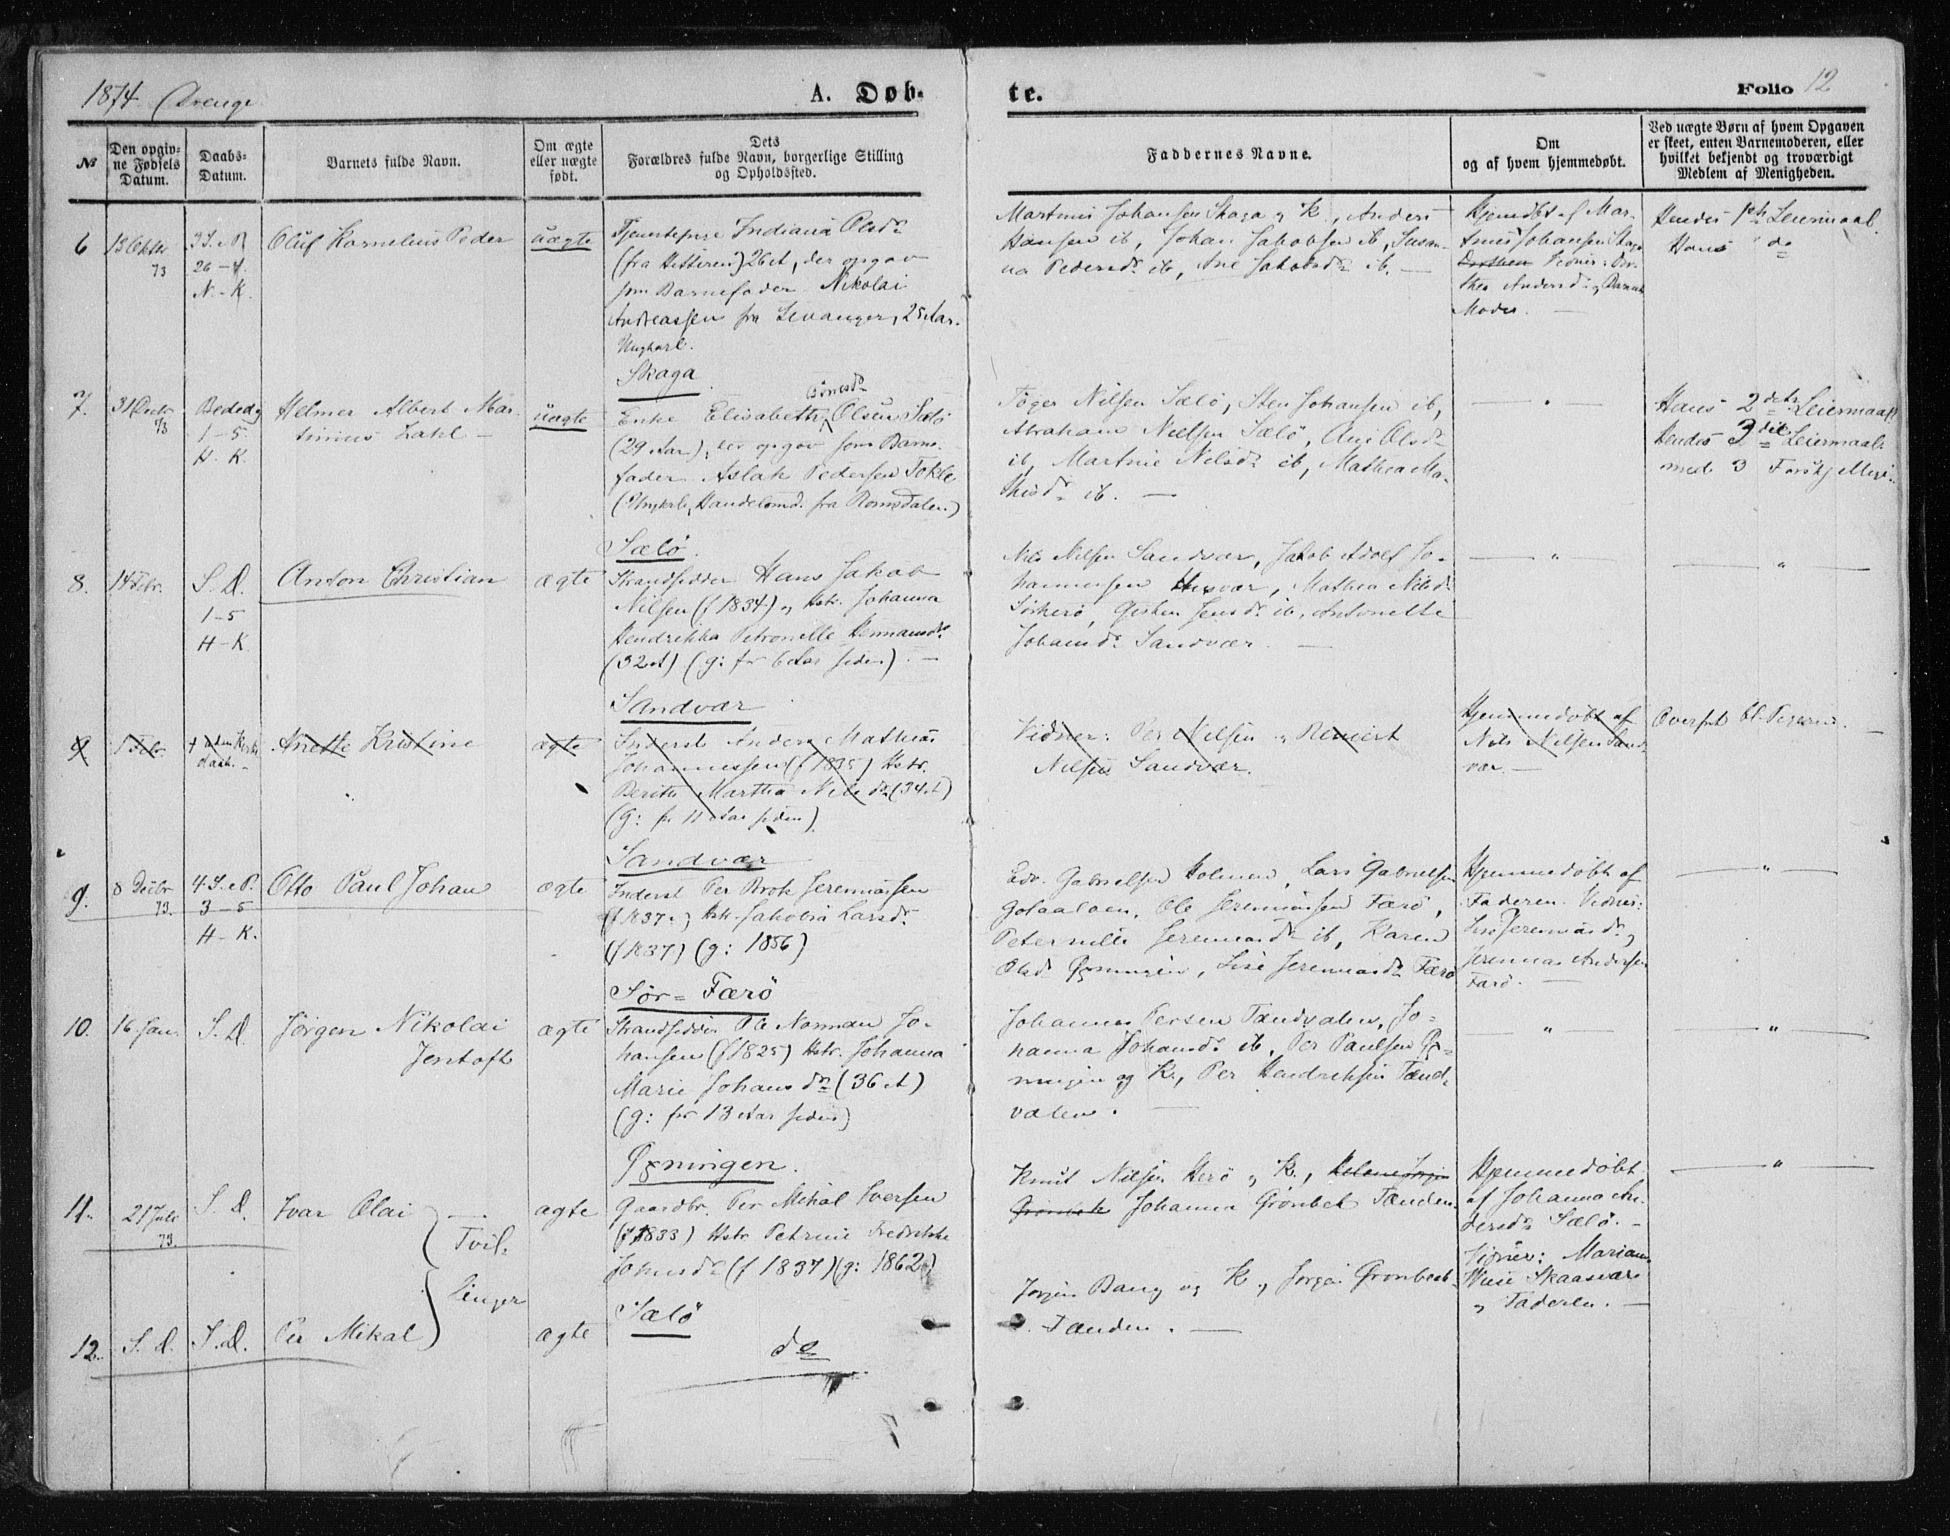 1874. Drenge
A. Døb-
te.
Folio 12
№
Den opgiv-
ne Fødsels
Datum.
Daabs-
Datum.
Barnets fulde Navn.
Om ægte
eller uægte
født.
Dets
Forældres fulde Navn, borgerlige Stilling
og Opholdssted.
Faddernes Navne.
Om
og af hvem hjemmedøbt.
Ved uægte Børn af hvem Opgaven
er skeet, enten Barnemoderen, eller
hvilket bekjendt og troværdigt
Medlem af Menigheden.
6
13 Oktbr
73
3 S. e P.
26-4.
N.-K.
Oluf Kornelius Peder
uægte
Tjenestepige Indiana Olsdr
(fra Hitteren) 26 A, der opgav
som Barnefader Nikolai
Andreassen fra Levanger, 25 Aar.
Ungkarl.
Skaga
Martinus Johansen Skaga og K., Anders
Hansen ib, Johan Jakobsen ib, Susan-
na Pedersdr ib, Ane Jakobsdr ib. —
Hjemdøbt af Mar-
tinus Johansen Skaga
Vidner: Dor-
thea Andersdr og Barnets
Moder. —
Hendes 1ste Leiermaal
Hans do
7.
31 Decbr
73
Bededag
1-5.
H.-K.
Helmer Albert Mar-
tinius Zahl —
uægte
Enke Elisabeth Olsen Sælø
(29 Aar), der opgav som Barne-
fader Aslak Pedersen Tokle
(Ungkarl, Handelsmd. fra Romsdalen)
Sælø.
Tøger Nilsen Sælø, Sten Johansen ib,
Abraham Nielsen Sælø, Ane Olsdr
ib, Martine Nilsdr ib, Mathea Ma-
thisdr ib. —
— " —
Hans 2det Leiermaal
Hendes 3die Leiermaal
med 3 Forskjellige
8.
14 Febr.
S. D.
1-5
H-K.
Anton Christian
ægte
Strandsidder Hans Jakob
Nilsen (f 1834) og Hstr. Johanna
Hendrikka Petronelle Hermansdr.
(32 A) (g: for 6 Aar siden). —
Sandvær
Nils Nilsen Sandvær, Jakob Adolf Jo-
hannessen Husvær, Mathea Nilsdr
Jensdr ib, Antonette
Johansdr Sandvær. —
— " —
— " —
9.
1 Febr.
Anette Kristine
ægte
Inderst Anders Mathias
Johannessen (f 1835) Hstr.
Berith Martha Nilsdr (34 A)
(g: for 11 Aar siden).
Sandvær
Vidner: Per Nilsen og Reinert
Nilsen Sandvær.
Hjemmedøbt af
Nils Nilsen Sand-
vær. —
Overført bl. Pigerne. —
9.
8 Decbr
73.
4. S. e P.
3-5
H-K.
Otto Paul Johan
ægte
Inderst Per Brok Jeremiassen
(f 1837) og Hstr. Jakobia Larsdr
(f 1837) (g: 1856)
Sør-Færø
Edv. Gabrielsen Holmen, Lars Gabrielsen
Ole Jeremiassen Færø,
Peternille Jeremiasdr ib, Karen
Olsdr Øxningen, Lise Jeremiasdr Færø
Hjemmedøbt af
Faderen. Vidner:
Lise Jeremiasdr og
Jeremias Andersen
Færø. —
— " —
10.
16 Jan.
S. D.
Jørgen Nikolai
Jentoft
ægte
Strandsidder Ole Norman Jo-
hansen (f 1825) Hstr. Johanna
Marie Johansdr (36 A)
(g: for 13 Aar siden)
Øxningen.
Johannes Persen Tændvalen, Jo-
hanna Johansdr ib, Per Paulsen Øx-
ningen og K., Per Hendriksen Tænd-
valen. —
— " —
— " —
11.
21 Juli
73.
S. D.
Ivar Olai
Tvil-
linger
ægte
Gaardbr. Per Mikal Iversen
(f 1833) Hstr. Petrine Fredrikke
Johnsdr (f 1837) (g: 1862)
Sælø
Knut Nilsen Herø og K.,
Johanna Grønbek Tænden.
Hjemmedøbt
af Johanna An-
dersdr Sælø. —
Vidner: Mariane
Wiese Skaasvær
og Faderen. —
— " —
12.
S. D.
S. D.
Per Mikal
ægte
do
Jørgen Bang og K., Jørgen Grønbeck
Tænden. —